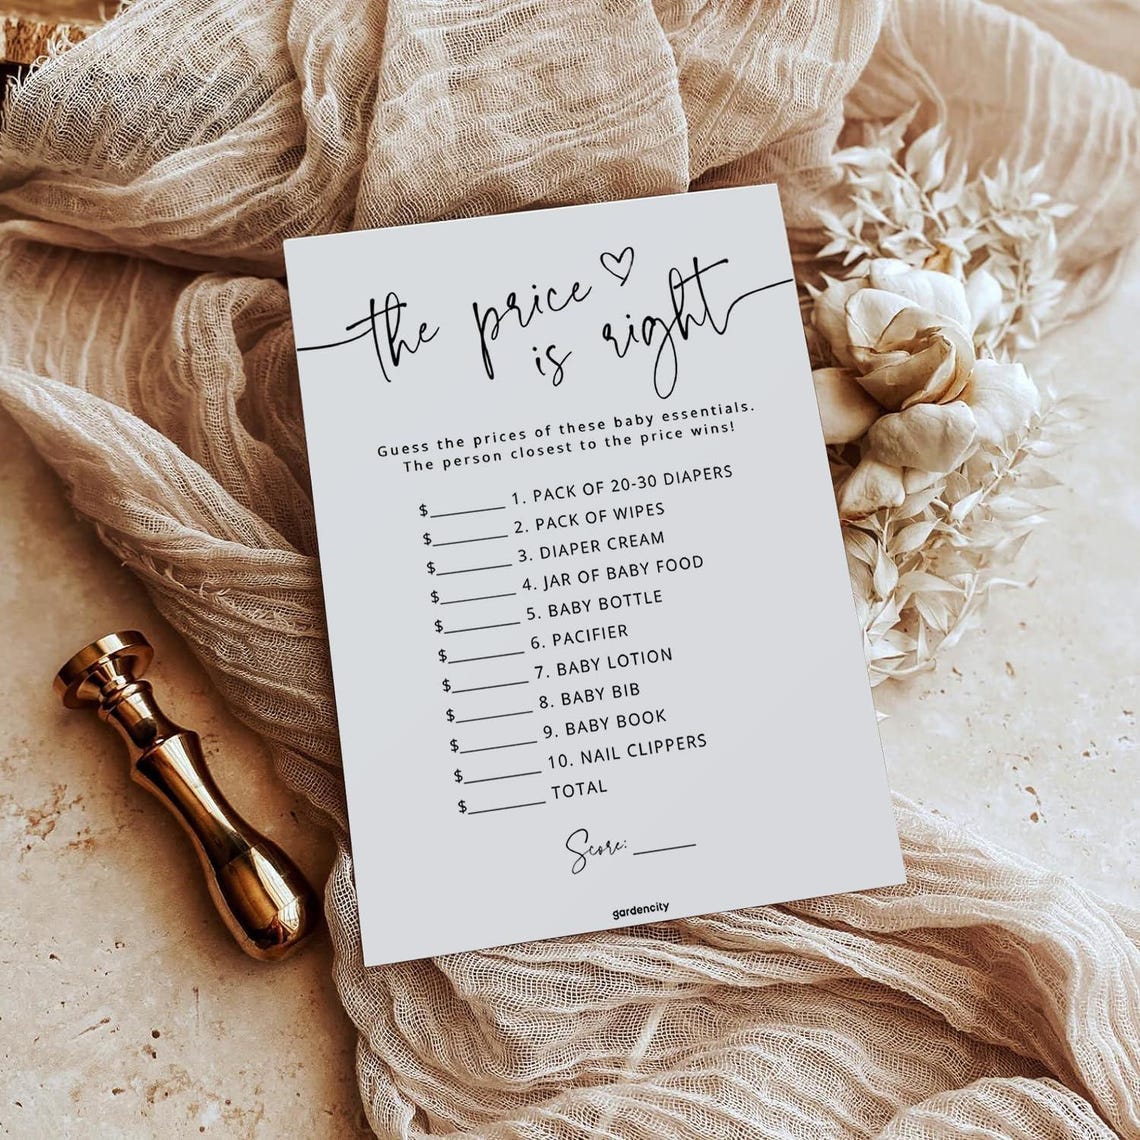 the price is right
Guess the prices of these baby essentials.
The person closest to the price wins!
$________ 1. PACK OF 20-30 DIAPERS
$________ 2. PACK OF WIPES
$________ 3. DIAPER CREAM
$________ 4. JAR OF BABY FOOD
$________ 5. BABY BOTTLE
$________ 6. PACIFIER
$________ 7. BABY LOTION
$________ 8. BABY BIB
$________ 9. BABY BOOK
$________ 10. NAIL CLIPPERS
$________ TOTAL
Score: ______
gardencity